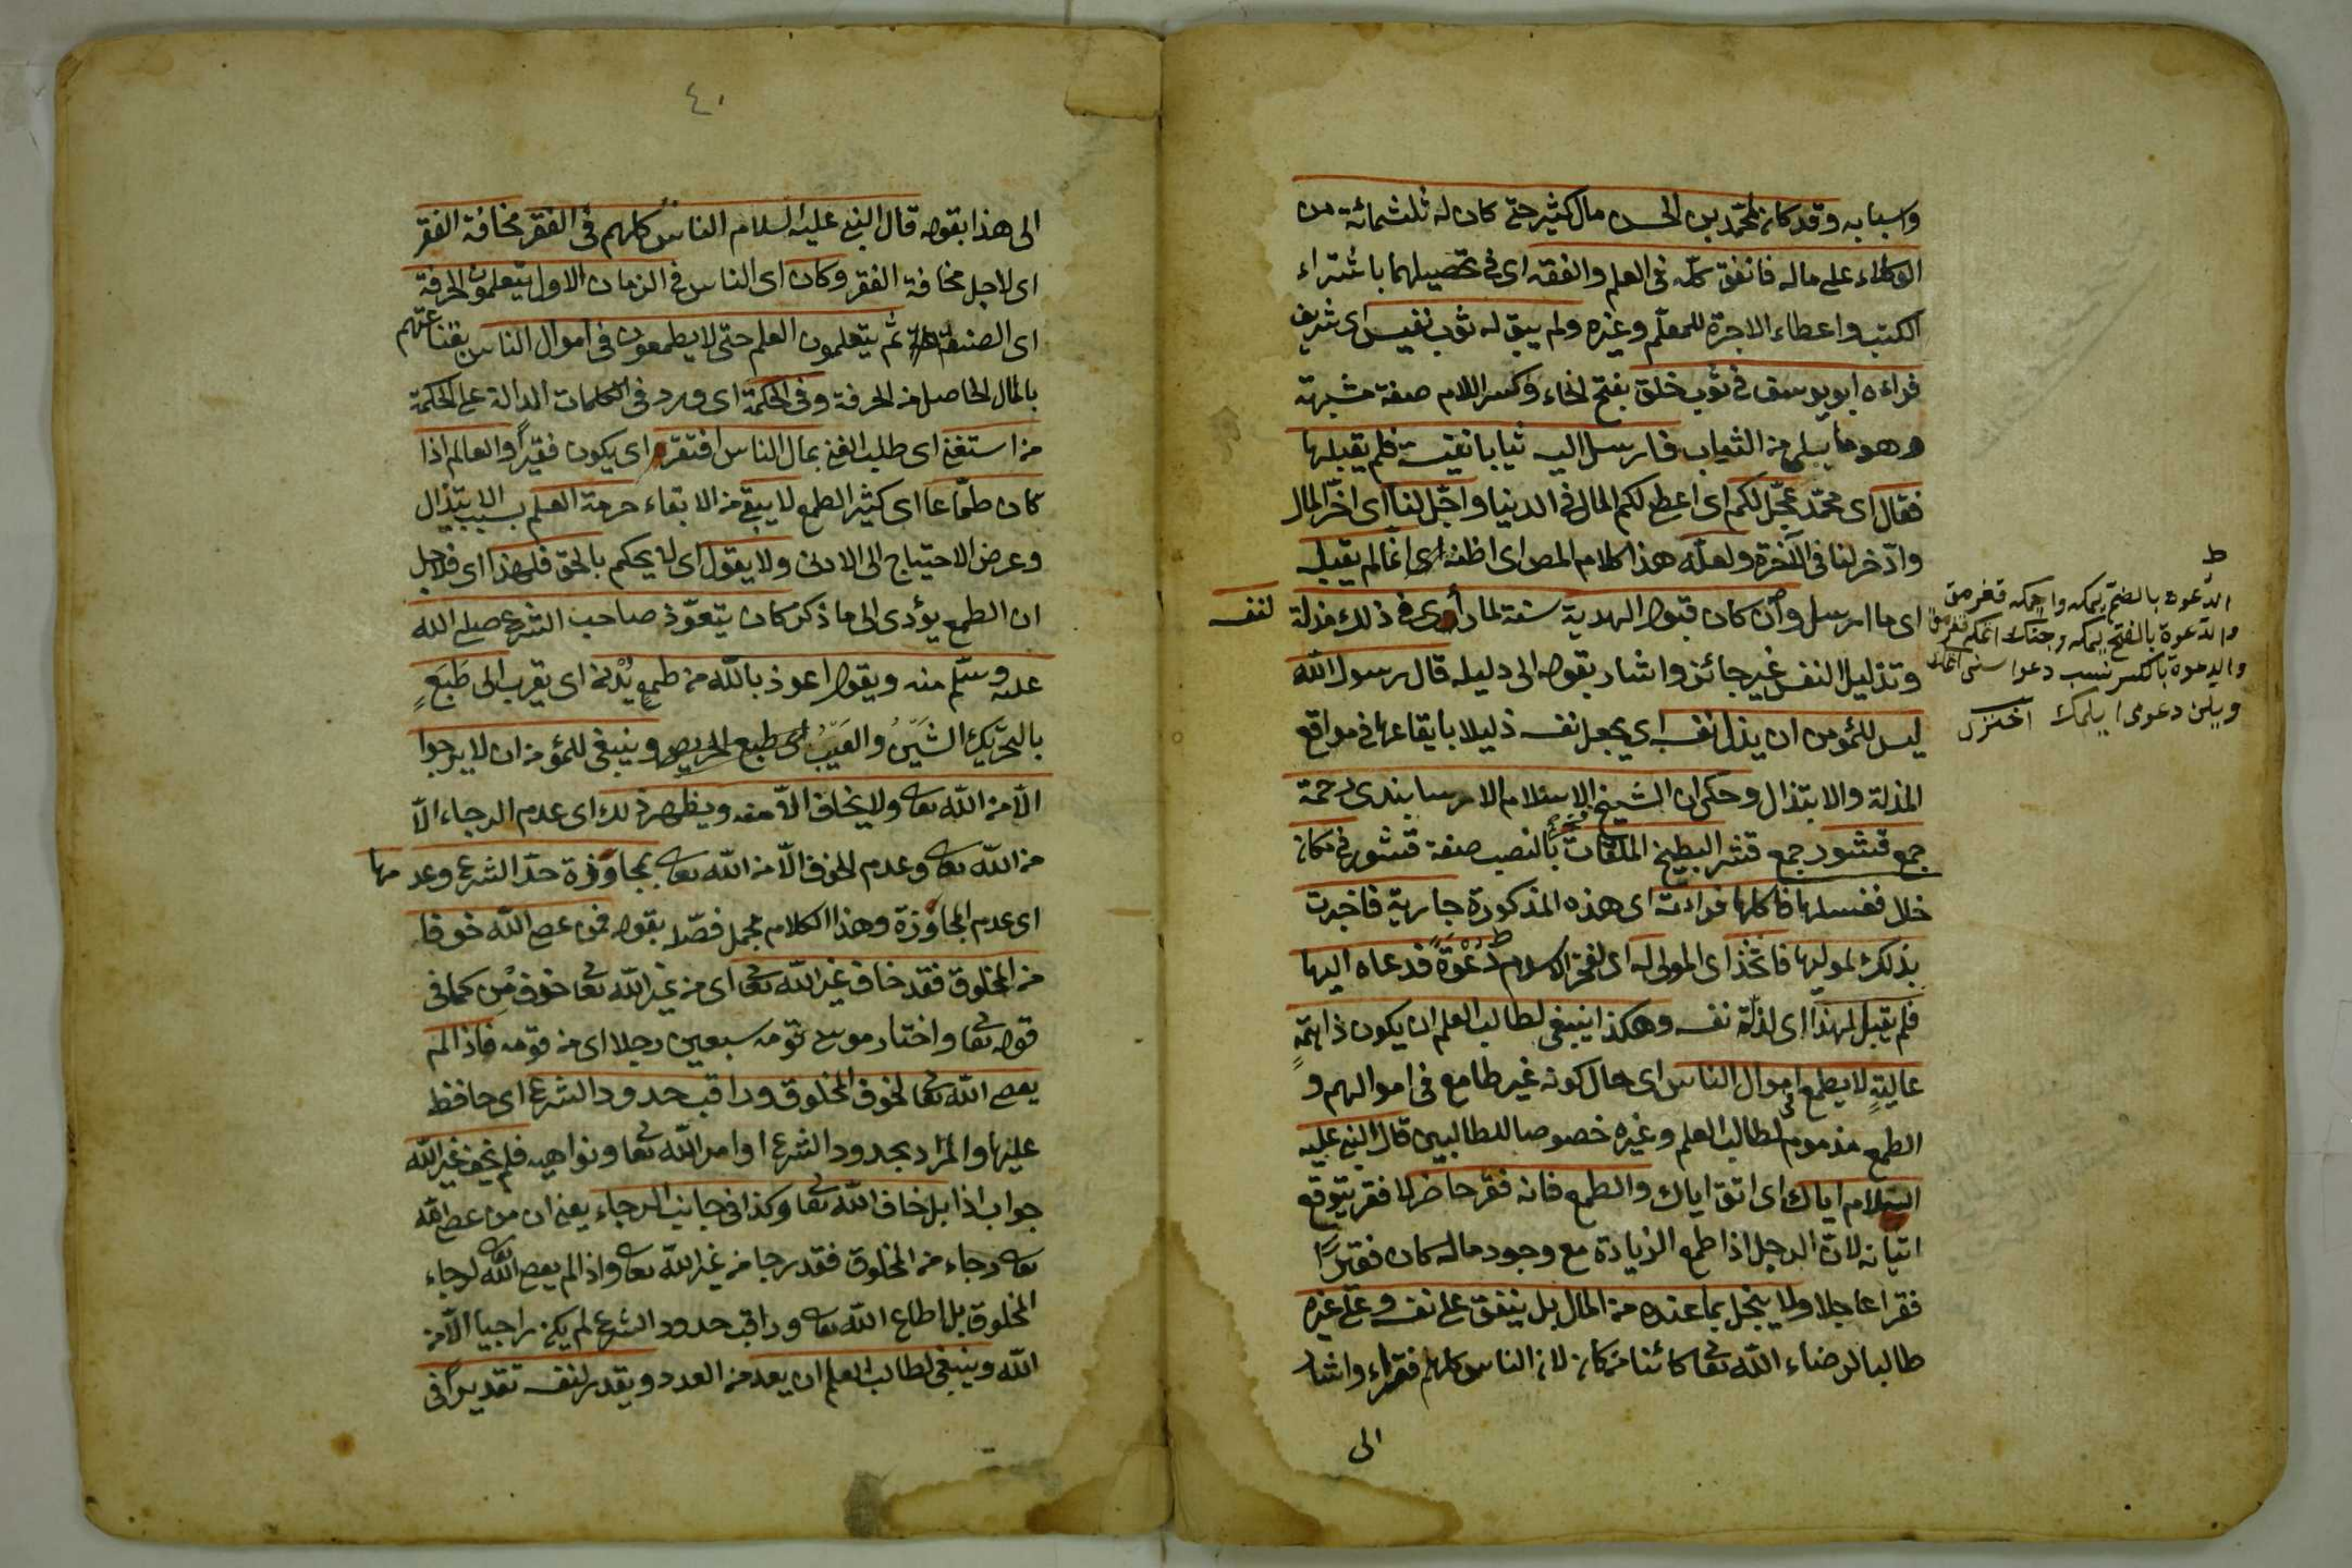 واسبابه وقد كان لمحمد بن الحسن مال كثير حتى كان له ثلثمائة من
الوكلاء على ماله فانفق كلّه فى العلم والفقه اى فى تحصيلهما باشتراء
الكتب واعطاء الاجرة للمعلّم وغيره ولم يبق له ثوب نفيس اى شريف
فراءه ابو يوسف فى ثوب خلق بفتح الخاء وكسر اللام صفة مشبهة
وهو ما يبلى من الثياب فارسل اليه ثيابا نفيسة فلم يقبلها
فقال اى محمّد عجّل لكم اى اعطى لكم المال فى الدنيا واجّل لنا اى اخّر المال
وادّخر لنا فى الآخرة ولعلّه هذا كلام المص اى اظنه اى انما لم يقبله
اى ما ارسل وان كان قبول الهدية سنة لما رأى فى ذلك مذلة لنفسه
وتذليل النفس غير جائز واشار بقوله الى دليله قال رسول الله
ليس للمؤمن ان يذل نفسه اى يجعل نفسه ذليلا بايقاعها فى مواقع
المذلة والابتذال وحكى ان الشيخ الاسلام الارسابندى رحمة
جمع قشور جمع قشر البطيخ الملقات بالنصب صفة قشور فى مكان
خال فغسلها فاكلها فرأته اى هذه المذكورة جارية فاخبرت
بذلك لموليها فاتّخذ اى المولى له اى لفخر الاسلام دَعْوَةً فدعاه اليها
فلم يقبل لهذا اى لذلّة نفسه وهكذا ينبغى لطالب العلم ان يكون ذا همّةٍ
عاليةٍ لا يطمع فى اموال الناس اى حال كونه غير طامع فى اموالهم و
الطمع مذموم لطالب العلم وغيره خصوصا للطالبين قال النبى عليه
السلام اياك اى اتق اياك والطمع فانه فقر حاضر لا فقر يتوقع
اتيانه لان الرجل اذا طمع الزيادة مع وجود ماله كان فقيرًا
فقرا عاجلا ولا يبخل بما عنده من المال بل ينفق على نفسه وعلى غيره
طالبا لرضاء الله تعا كائنا من كان لان الناس كلهم فقراء واشار
الى
ط
الدّعوه بالضم يمكه
والدّعوة بالفتح يمكه
والدعوة بالكسر نسب دعوا
اختری
٤٠
الى هذا بقوله قال النبى عليه السلام الناس كلهم فى الفقر مخافة الفقر
اى لاجل مخافة الفقر وكان اى الناس فى الزمان الاول يتعلمون الحرفة
اى الصنعة ثم يتعلمون العلم حتى لا يطمعون فى اموال الناس بقناعتهم
بالمال الحاصل من الحرفة وفى الحكمة اى ورد فى الكلمات الدالة على الحكمة
من استغنى اى طلب الغنى بمال الناس افتقر اى يكون فقيرًا والعالم اذا
كان طمّاعا اى كثير الطمع لا يبقى من الابقاء حرمة العلم بسبب الابتذال
وعرض الاحتياج الى الادنى ولا يقول اى لا يحكم بالحق فلهذا اى فلاجل
ان الطمع يؤدى الى ما ذكر كان يتعوّذ صاحب الشرع صلى الله
عليه وسلّم منه ويقول اعوذ بالله من طمع يُدْنى اى يقرب الى طَبَعٍ
بالتحريك الشَيْنُ والعَيْبُ اى طبع الحريص وينبغى للمؤمن ان لا يرجوا
الّا من الله تعا ولا يخاف الّا منه ويظهر ذلك اى عدم الرجاء الّا
من الله تعا وعدم الخوف الّا من الله تعا بمجاوزة حدّ الشرع وعدمها
اى عدم المجاوزة وهذا الكلام مجمل فصّله بقوله فمن عصى الله خوفا
من المخلوق فقد خاف غير الله تعا اى من غير الله تعا خوف مِن كما فى
قوله تعا واختار موسى قومه سبعين رجلا اى من قومه فاذا لم
يعص الله تعا لخوف المخلوق وراقب حدود الشرع اى حافظ
عليها والمراد بحدود الشرع اوامر الله تعا ونواهيه فلم يخف غير الله
جواب اذا بل خاف الله تعا وكذا فى جانب الرجاء يعنى ان من عصى الله
تعا رجاء من المخلوق فقد رجا من غير الله تعا واذا لم يعص الله لرجاء
المخلوق بل اطاع الله تعا وراقب حدود الشرع لم يكن راجيا الّا من
الله وينبغى لطالب العلم ان يعد من العدد ويقدر لنفسه تقديرًا فى